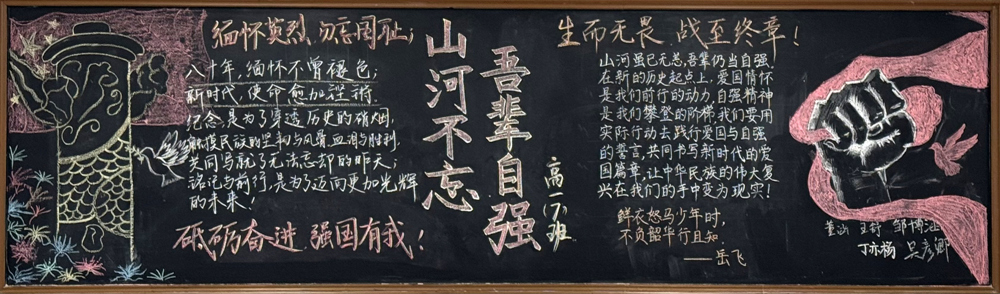 缅怀英烈 勿忘国耻；
八十年，缅怀不曾褪色；
新时代，使命愈加铿锵
纪念是为了穿透历史的硝烟，
触摸民族的坚韧与风骨血泪与胜利
共同写就了无法忘却的昨天；
铭记与前行，是为了迈向更加光辉
的未来！
砥砺奋进 强国有我！
山河不忘
吾辈自强
高一(7)班
生而无畏 战至终章！
山河虽已无恙，吾辈仍当自强
在新的历史起点上，爱国情怀
是我们前行的动力，自强精神
是我们攀登的阶梯，我们要用
实际行动去践行爱国与自强
的誓言，共同书写新时代的爱
国篇章，让中华民族的伟大复
兴在我们的手中变为现实！
鲜衣怒马少年时，
不负韶华行且知
——岳飞
董涵 王舒 邹博
丁亦杨 吴彦卿